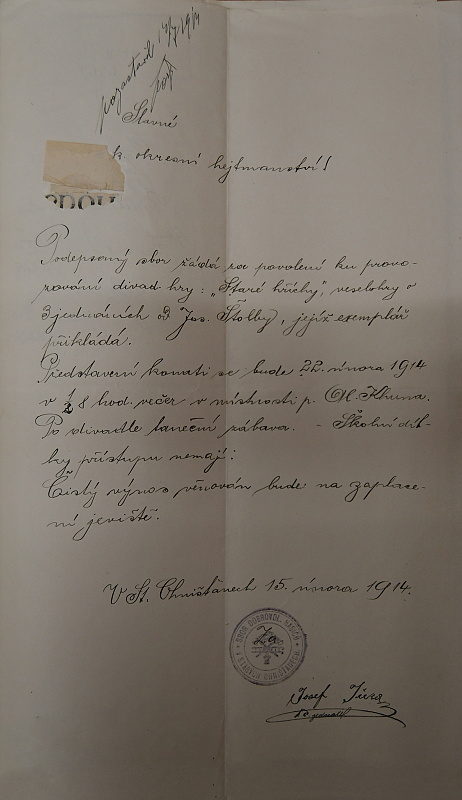 Slavné
k. okresní hejtmanství!
Podepsaný sbor žádá za povolení ku provo-
zování divad. hry: „Staré hříchy", veselohry o
3 jednáních od Jos. Štolby, jejíž exemplář
přikládá.
Představení konati se bude 22. února 1914
v ½ 8 hod. večer v místnosti p. Khuna.
Po divadle taneční zábava. - Školní dít-
ky přístupu nemají.
Čistý výnos věnován bude na zaplace-
ní jeviště.
V St. 15. února 1914.
SBOR DOBROVOL. HASIČŮ
Josef